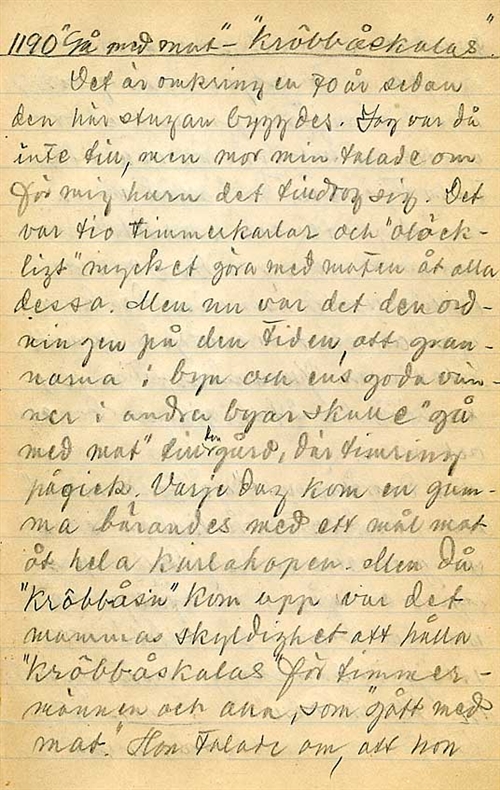 1190 "Gå med mat" - "Kröbbåskalas".
Det är omkring en 70 år sedan
den här stugan byggdes. Jag var då
inte till, men mor min talade om
för mig huru det tilldrog sig. Det
var tio timmerkarlar och "olöck-
ligt" mycket göra med maten åt alla
dessa. Men nu var det den ord-
ningen på den tiden, att gran-
narna i byn och ens goda vän-
ner i andra byar skulle "gå
med mat" till den gård, där timring
pågick. Varje dag kom en gum-
ma bärandes med ett mål mat
åt hela karlahopen. Men då
"kröbbåsn" kom upp var det
mammas skyldighet att hålla
"kröbbåskalas" för timmer-
männen och alla, som "gått med
mat." Hon talade om, att hon